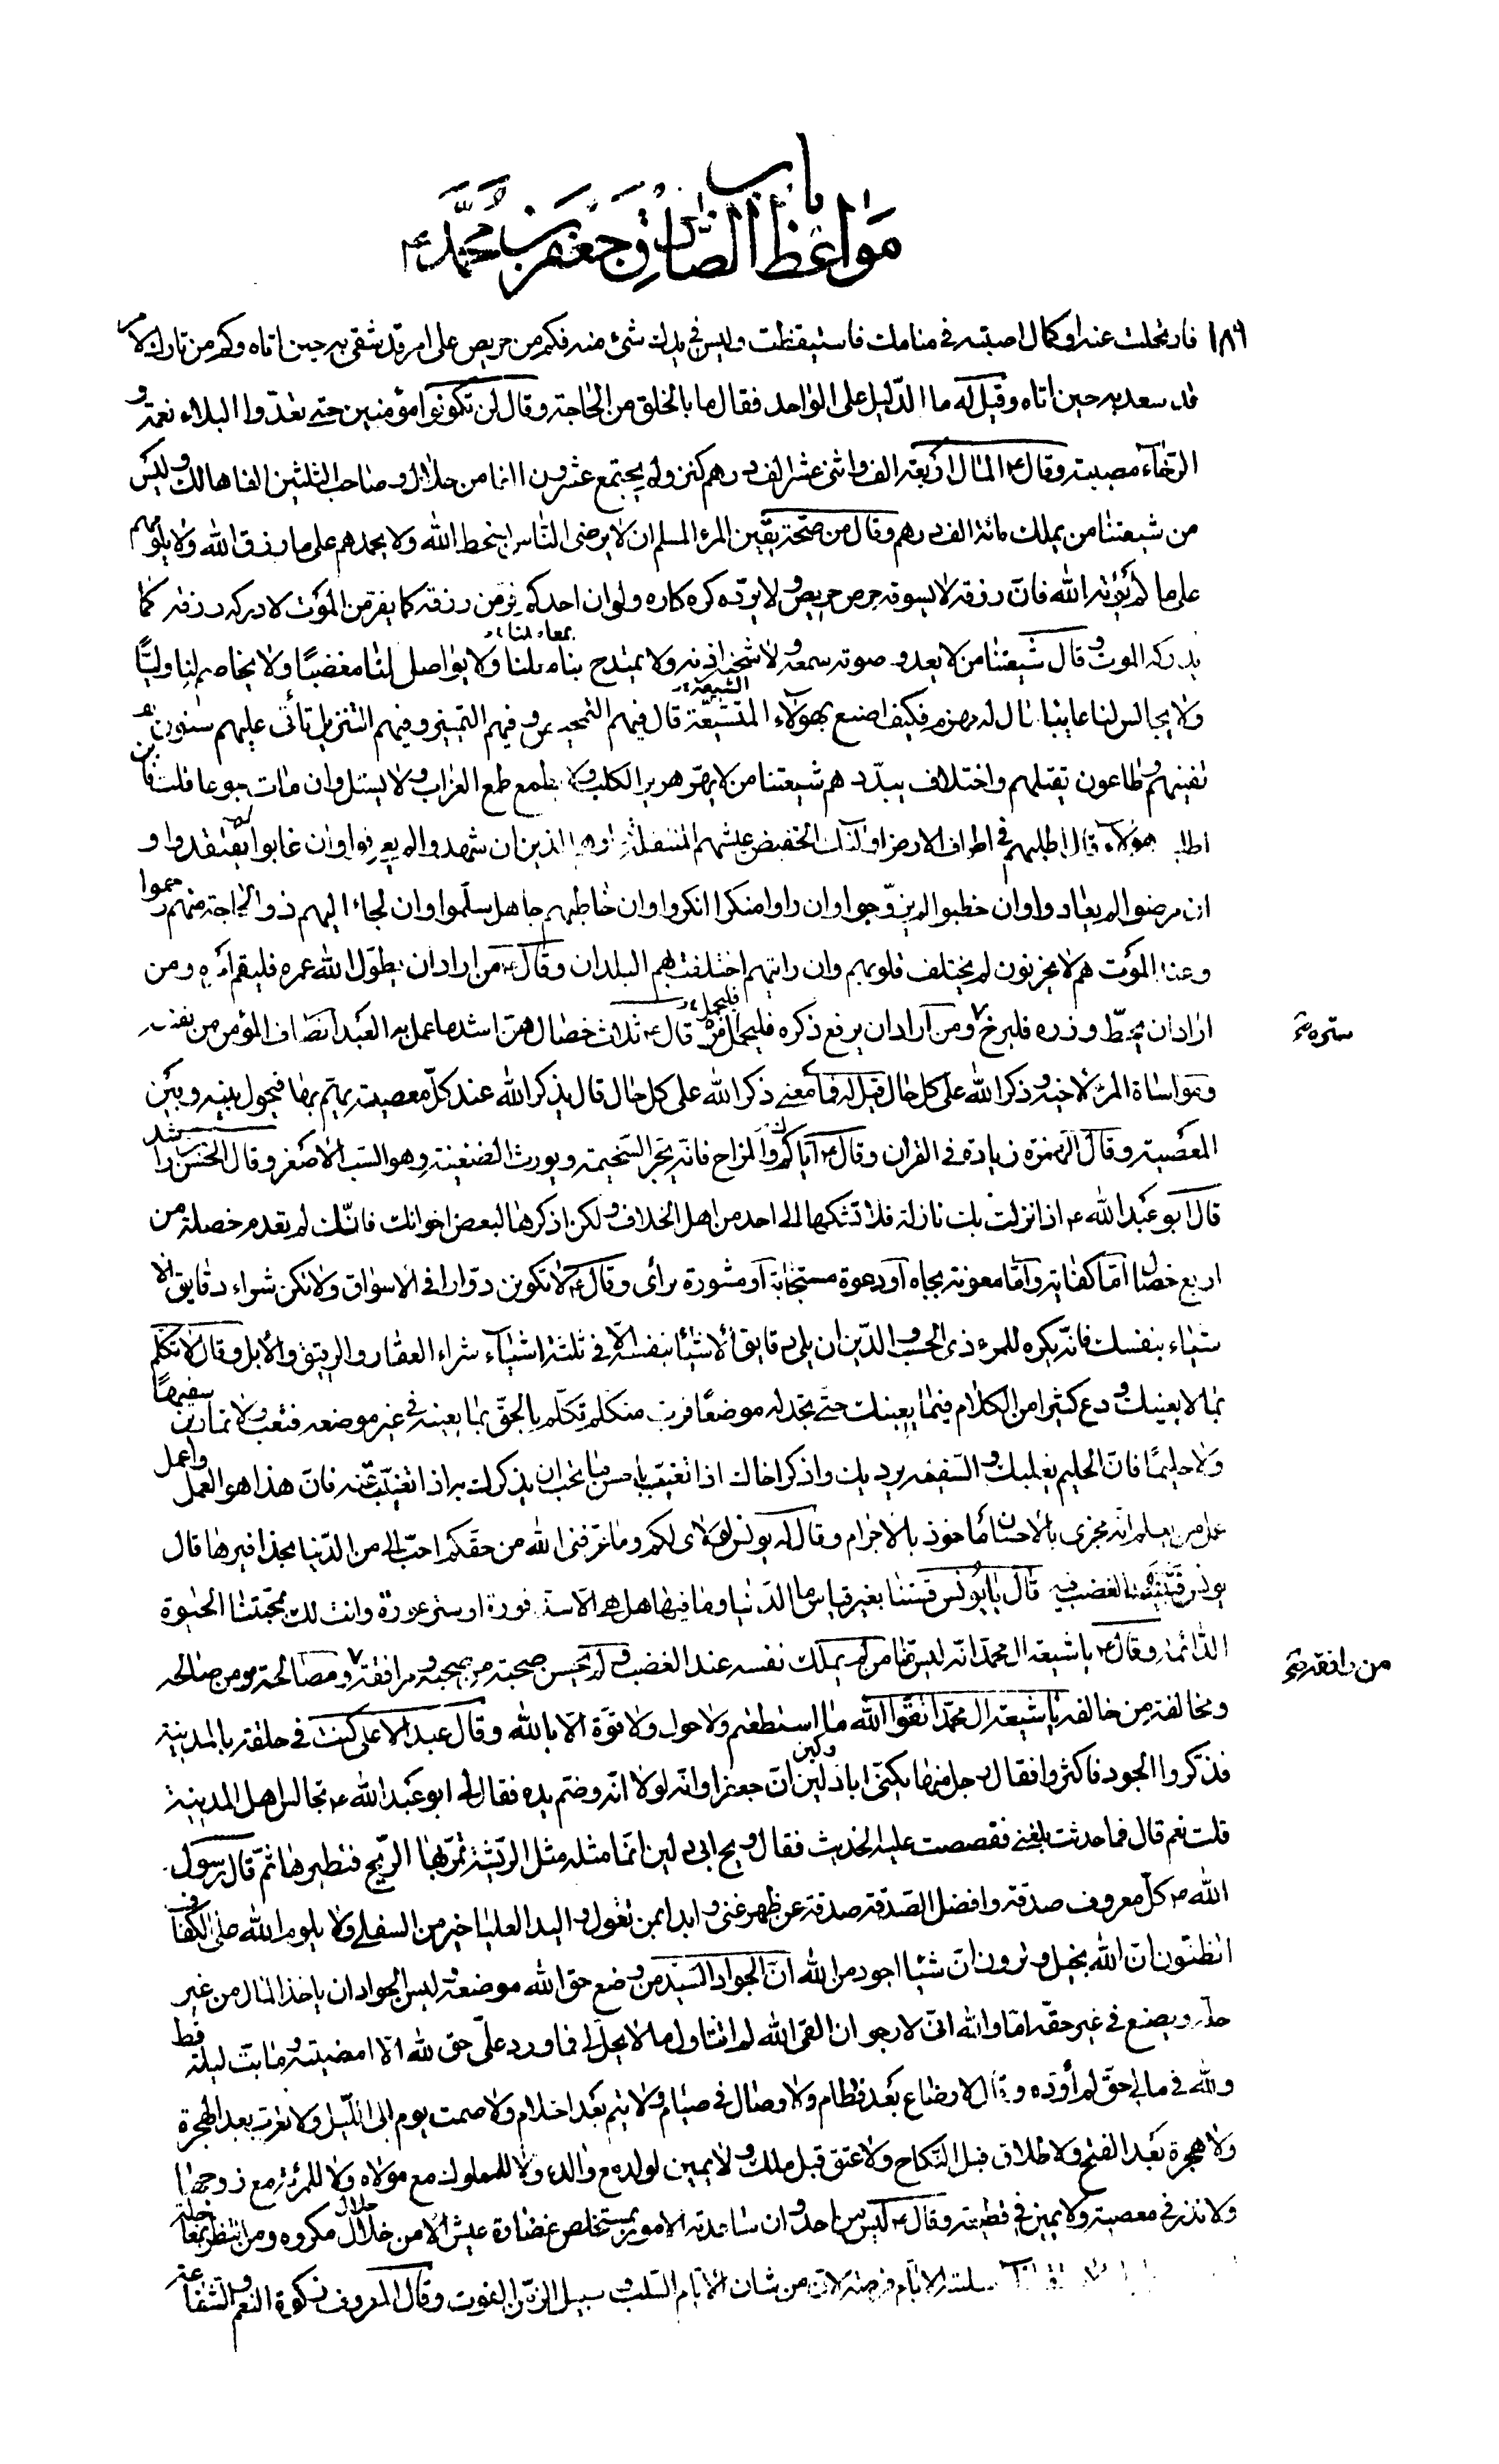 باب
مواعظ الصادق جعفر بن محمد ع
١٨٦ فارتحلت عنه او كمال اصبته في منامك فاستيقظت وليس في يدك شئ منه فكم من حريص على امر قد شقى به حين اتاه وكم من تارك لامر
قد سعد به حين اتاه وقيل له ما الدليل على الواحد فقال ما بالخلق من الحاجة وقال لن تكونوا مؤمنين حتى تعدوا البلاء نعمة و
الرخاء مصيبة وقال ع المال اربعة الف واثنى عشر الف درهم كنز ولم يجتمع عشرون الفا من حلال وصاحب الثلثين الفا هالك وليس
من شيعتنا من يملك مائة الف درهم وقال من صحة يقين المرء المسلم ان لا يرضى الناس بسخط الله ولا يحمدهم على ما رزق الله ولا يلومهم
على ما لم يؤته الله فان رزقه لا يسوقه حرص حريص ولا يرده كره كاره ولو ان احدكم فر من رزقه كما يفر من الموت لادركه رزقه كما
يدركه الموت وقال شيعتنا من لا يعدو صوته سمعه ولا شحنه اذنه ولا يمتدح بنا معلنا ولا يواصل لنا مغضبا ولا يخاصم لنا وليا
بمعاد لنا
ولا يجالس لنا عايبا قال له مهزم فكيف اصنع بهؤلاء المتشيعة قال فيهم التمحيص وفيهم التمييز وفيهم التنزيل تأتى عليهم سنون
الشيعة
تفنيهم وطاعون تقتلهم واختلاف يبدد هم شيعتنا من لا يهر هرير الكلب ولا يطمع طمع الغراب ولا يسئل وان مات جوعا قلت فاين
اطلب هؤلاء قال اطلبهم في اطراف الارض اولئك الخفيض عيشهم المنتقلة دارهم الذين ان شهدوا لم يعرفوا وان غابوا لم يفتقدوا و
ان مرضوا لم يعادوا وان خطبوا لم يزوجوا وان راوا منكرا انكروا وان خاطبهم جاهل سلموا وان لجاء اليهم ذو الحاجة منهم رحموا
وعند الموت هم لا يحزنون لم يختلف قلوبهم وان رايتهم اختلفت بهم البلدان وقال ع من اراد ان يطول الله عمره فليقم امره ومن
اراد ان يحط وزره فليرخ ٧ ومن اراد ان يرفع ذكره فليخمل امره وقال ع ثلاث خصال هن اشد ما عمل به العبد انصاف المؤمن من نفسه
فليجمل
ستره
ومواساة المرء لاخيه وذكر الله على كل حال قيل له فما معنى ذكر الله على كل حال قال يذكر الله عند كل معصية يهم بها فيحول بينه وبين
المعصية وقال الهمزة زيادة في القران وقال ع اياكم والمزاح فانه يجر السخيمة ويورث الضغينة وهو السب الاصغر وقال الحسن بن راشد
قال ابو عبد الله ع اذا نزلت بك نازلة فلا تشكها الى احد من اهل الخلاف ولكن اذكرها لبعض اخوانك فانك لم تعدم خصلة من
اربع خصال اما كفاية واما معونة بجاه او دعوة مستجابة او مشورة براى وقال ع لا تكونن دوارا في الاسواق ولا تكن شراء دقايق الا
شياء بنفسك فانه يكره للمرء ذى الحسب والدين ان يلى دقايق الاشياء بنفسه الا في ثلثة اشياء شراء العقار والرقيق والابل وقال لا تكلم
بما لا يعنيك ودع كثيرا من الكلام فيما يعنيك حتى تجد له موضعا فرب متكلم تكلم بالحق بما يعنيه في غير موضعه فتعب ولا تمارين سفيها
ولا حليما فان الحليم يغلبك والسفيه يرديك واذكر اخاك اذا تغيب باحسن ما تحب ان يذكرك به اذا تغيبت عنه فان هذا هو العمل واعمل
عمل من يعلم انه مجزى بالاحسان ماخوذ بالاجرام وقال له يونس لولاى لكم وما عرفنى الله من حقكم احب الى من الدنيا بحذافيرها قال
يونس فتبينت الغضب فيه قال يا يونس قستنا بغير قياس ما الدنيا وما فيها هل هى الا سد فورة او ستر عورة وانت لك بمحبتنا الحيوة
الدائمة وقال ع يا شيعة ال محمد انه ليس منا من لم يملك نفسه عند الغضب ولم يحسن صحبة من صحبه ومرافقة ٧ ومصالحة من صالحه
من رافقه
ومخالفة من خالفه يا شيعة ال محمد اتقوا الله ما استطعتم ولا حول ولا قوة الا بالله وقال عبد الاعلى كنت في حلقة بالمدينة
فذكروا الجود فاكثروا فقال رجل منها يكنى ابا دلين ان جعفرا وانه لولا انه وضم يده فقال لى ابو عبد الله ع تجالس اهل المدينة
وكين
قلت نعم قال فما حدثت بلغنى فقصصت عليه الحديث فقال ويح ابى دلين انما مثله مثل الريشة تمر بها الريح فتطيرها ثم قال رسول
الله ص كل معروف صدقة وافضل الصدقة صدقة عن ظهر غنى وابدا بمن تعول واليد العليا خير من السفلى ولا يلوم الله على الكفاف
اتظنون ان الله بخيل وترون ان شيئا اجود من الله ان الجواد السيد من وضع حق الله موضعه وليس الجواد ان ياخذ المال من غير
حله ويضع في غير حقه اما والله انى لارجو ان القى الله لم اتناول ما لا يحل لى فما ورد على حق لله الا امضيته وما بت ليلة قط
ولله في مالى حق لم اؤده وقال لا رضاع بعد فطام ولا وصال في صيام ولا يتم بعد احتلام ولا صمت يوم الى الليل ولا تعرب بعد الهجرة
ولا هجرة بعد الفتح ولا طلاق قبل النكاح ولا عتق قبل ملك ولا يمين لولد مع والده ولا للمملوك مع مولاه ولا للمرئة مع زوجها
ولا نذر في معصية ولا يمين في قطيعة وقال ع ليس من احد وان ساعدته الامور بمستخلص غضارة عيش الا من خلال مكروه ومن انتظر بمعاجلة
حلال
سلبته الايام فرصته لان من شان الايام السلب وسبيل الزمن الفوت وقال المعروف زكوة النعم والشفاعة